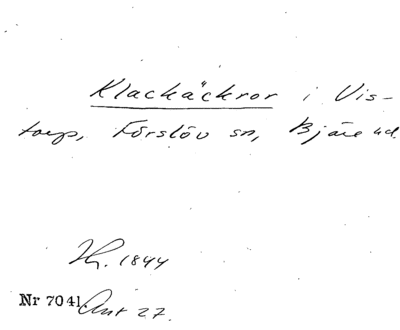 Klackäckror i Vis-
torp, Förslöv sn, Bjäre hd.
Hr. 1844
Nr 7041. Ant 27.